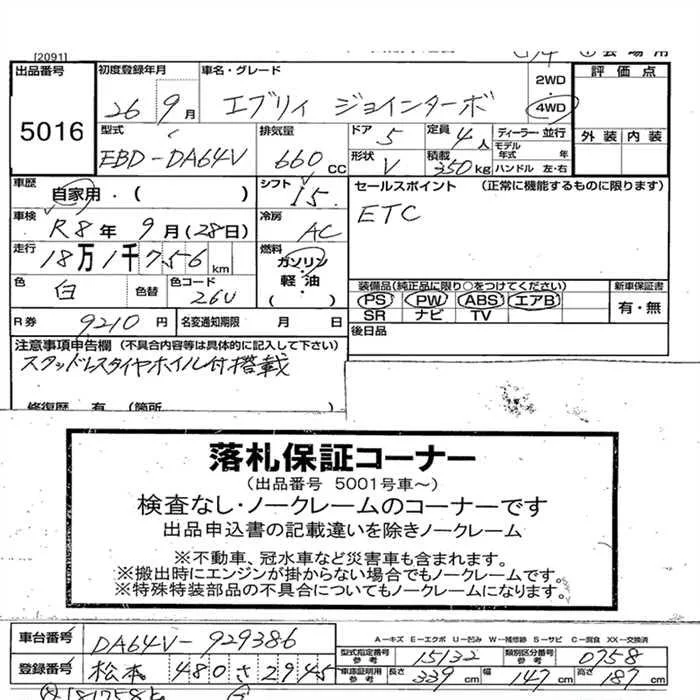 [2091]
出品番号 初度登録年月 車名・グレード 2WD 評価点
5016 26年 9月 エブリィ ジョインターボ 4WD
型式 排気量 ドア 定員 ディーラー・並行 外装 内装
EBD-DA64V 660CC 5 4人 モデル年式 年
形状 V 積載 350kg ハンドル 左・右
車歴 自家用・( ) シフト I5. セールスポイント (正常に機能するものに限ります)
車検 R8年 9月(28日) 冷房 AC ETC
走行 18万1千756km 燃料 ガソリン
軽油
( )
色 白 色替 色コード 26U 装備品(純正品に限り○をつけてください) 新車保証書
PS PW ABS エアB 有・無
SR ナビ TV
R券 9210円 名変通知期限 月 日 後日品
注意事項申告欄(不具合内容等は具体的に記入して下さい)
スタッドレスタイヤホイル付搭載
修復歴 有 (箇所
落札保証コーナー
(出品番号 5001号車~)
検査なし・ノークレームのコーナーです
出品申込書の記載違いを除きノークレーム
※不動車、冠水車など災害車も含まれます。
※搬出時にエンジンが掛からない場合でもノークレームです。
※特殊特装部品の不具合についてもノークレームになります。
車台番号 DA64V-929386
A-キズ E-エクボ U-凹み W-補修跡 S-サビ C-腐食 XX-交換済
型式指定番号 参考 15132 類別区分番号 参考 0758
登録番号 松本 480 さ 2945
車庫証明用 参考 長さ 339cm 幅 147cm 高さ 187cm